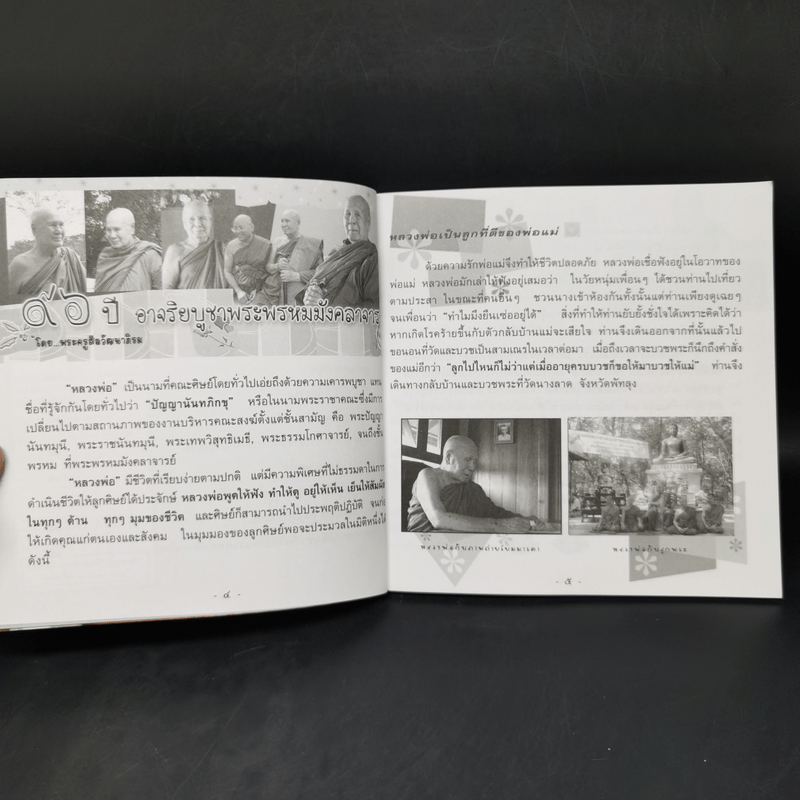 ๙๖ ปี อาจริยบูชาพระพรหมมังคลาจารย์
โดย...พระครูศีลวัฒนาภิรม
"หลวงพ่อ" เป็นนามที่คณะศิษย์โดยทั่วไปเอ่ยถึงด้วยความเคารพบูชา แทน
ชื่อที่รู้จักกันโดยทั่วไปว่า "ปัญญานันทภิกขุ" หรือในนามพระราชาคณะซึ่งมีการ
เปลี่ยนไปตามสถานภาพของงานบริหารคณะสงฆ์ตั้งแต่ชั้นสามัญ คือ พระปัญญา
นันทมุนี, พระราชนันทมุนี, พระเทพวิสุทธิเมธี, พระธรรมโกศาจารย์, จนถึงชั้น
พรหม ที่พระพรหมมังคลาจารย์
"หลวงพ่อ" มีชีวิตที่เรียบง่ายตามปกติ แต่มีความพิเศษที่ไม่ธรรมดาในการ
ดำเนินชีวิตให้ลูกศิษย์ได้ประจักษ์ หลวงพ่อพูดให้ฟัง ทำให้ดู อยู่ให้เห็น เย็นให้สัมผัส
ในทุกๆ ด้าน ทุกๆ มุมของชีวิต และศิษย์ก็สามารถนำไปประพฤติปฏิบัติ จนก่อ
ให้เกิดคุณแก่ตนเองและสังคม ในมุมมองของลูกศิษย์พอจะประมวลในมิติหนึ่งได้
ดังนี้
- ๔ -
หลวงพ่อเป็นลูกที่ดีของพ่อแม่
ด้วยความรักพ่อแม่จึงทำให้ชีวิตปลอดภัย หลวงพ่อเชื่อฟังอยู่ในโอวาทของ
พ่อแม่ หลวงพ่อมักเล่าให้ฟังอยู่เสมอว่า ในวัยหนุ่มเพื่อนๆ ได้ชวนท่านไปเที่ยว
ตามประสา ในขณะที่คนอื่นๆ ชวนนางเข้าห้องกันทั้งนั้นแต่ท่านเพียงดูเฉยๆ
จนเพื่อนว่า "ทำไมมึงยืนเซ่ออยู่ได้" สิ่งที่ทำให้ท่านยับยั้งชั่งใจได้เพราะคิดได้ว่า
หากเกิดโรคร้ายขึ้นกับตัวกลับบ้านแม่จะเสียใจ ท่านจึงเดินออกจากที่นั้นแล้วไป
ขอนอนที่วัดและบวชเป็นสามเณรในเวลาต่อมา เมื่อถึงเวลาจะบวชพระก็นึกถึงคำสั่ง
ของแม่อีกว่า "ลูกไปไหนก็ไม่ว่าแต่เมื่ออายุครบบวชก็ขอให้มาบวชให้แม่" ท่านจึง
เดินทางกลับบ้านและบวชพระที่วัดนางลาด จังหวัดพัทลุง
หลวงพ่อกับภาพถ่ายโยมมารดา
หลวงพ่อกับลูกพระ
- ๕ -